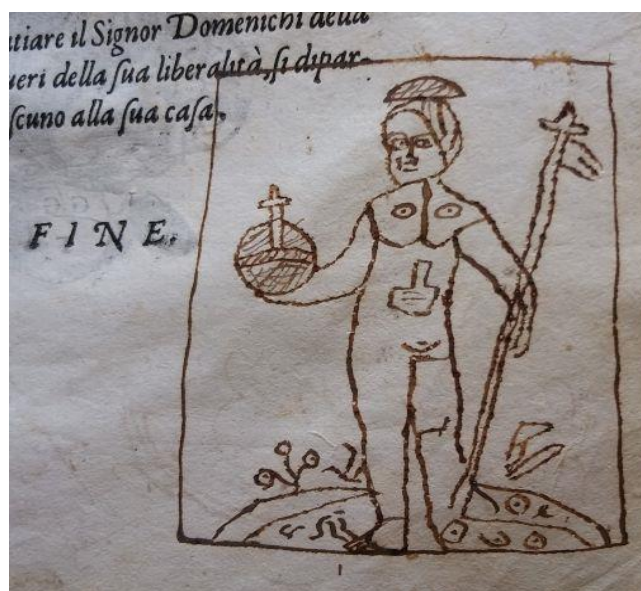 tiare il Signor Domenichi della
ueri della ſua liberalità, ſi dipar-
ſcuno alla ſua caſa.
FINE.